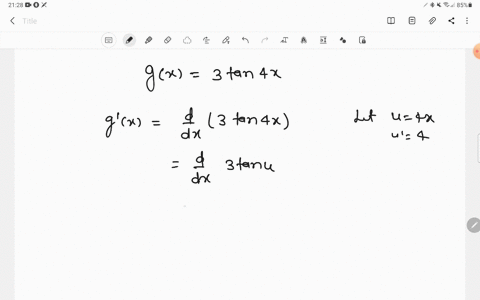 21:28
85%
Title
g(x) = 3 tan 4x
g'(x) = d/dx (3 tan 4x)
Let u = 4x
u' = 4
= d/dx 3 tan u